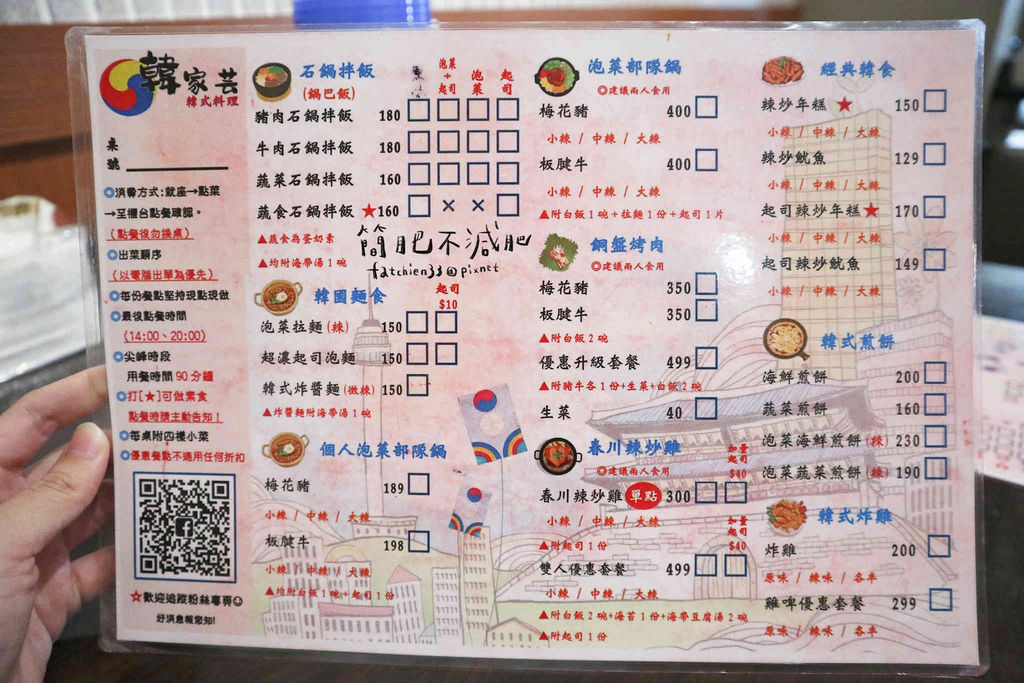 韓家芸
韓式料理
桌
號
消費方式:就座→點菜
→至櫃台點餐確認。
(點餐後勿換桌)
出菜順序
(以電腦出單為優先)
每份餐點堅持現點現做
最後點餐時間
(14:00、20:00)
尖峰時段
用餐時間90分鐘
打[★]可做素食
點餐時請主動告知!
每桌附四樣小菜
優惠餐點不適用任何折扣
★歡迎追蹤粉絲專頁
好消息報您知!
石鍋拌飯
(鍋巴飯)
泡菜+起司
泡菜
起司
豬肉石鍋拌飯 180
牛肉石鍋拌飯 180
蔬菜石鍋拌飯 160
蔬食石鍋拌飯 ★160 × ×
▲蔬食為蛋奶素
▲均附海帶湯1碗
簡肥不減肥
fatchien33@pixnet
韓國麵食
起司
$10
泡菜拉麵(辣) 150
超濃起司泡麵 150
韓式炸醬麵(微辣) 150
▲炸醬麵附海帶湯1碗
個人泡菜部隊鍋
梅花豬 189
小辣 / 中辣 / 大辣
板腱牛 198
小辣 / 中辣 / 大辣
▲均附白飯1碗+起司1份
泡菜部隊鍋
◎建議兩人食用
梅花豬 400
小辣 / 中辣 / 大辣
板腱牛 400
小辣 / 中辣 / 大辣
▲附白飯1碗+拉麵1份+起司1片
銅盤烤肉
◎建議兩人食用
梅花豬 350
板腱牛 350
▲附白飯2碗
優惠升級套餐 499
▲附豬牛各1份+生菜+白飯2碗
生菜 40
春川辣炒雞
◎建議兩人食用
加量起司
$40
春川辣炒雞 單點 300
小辣 / 中辣 / 大辣
▲附起司1份
加量起司
$40
雙人優惠套餐 499
小辣 / 中辣 / 大辣
▲附白飯2碗+海苔1份+海帶豆腐湯2碗
▲附起司1份
經典韓食
辣炒年糕★ 150
小辣 / 中辣 / 大辣
辣炒魷魚 129
小辣 / 中辣 / 大辣
起司辣炒年糕★ 170
小辣 / 中辣 / 大辣
起司辣炒魷魚 149
小辣 / 中辣 / 大辣
韓式煎餅
海鮮煎餅 200
蔬菜煎餅 160
泡菜海鮮煎餅(辣) 230
泡菜蔬菜煎餅(辣) 190
韓式炸雞
炸雞 200
原味 / 辣味 / 各半
雞啤優惠套餐 299
原味 / 辣味 / 各半